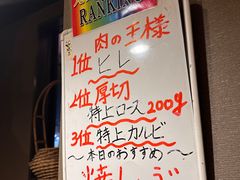 RANKING
肉の王様
1位 ヒレ
2位 厚切
特上ロース 200g
3位 特上カルビ
〜本日のおすすめ〜